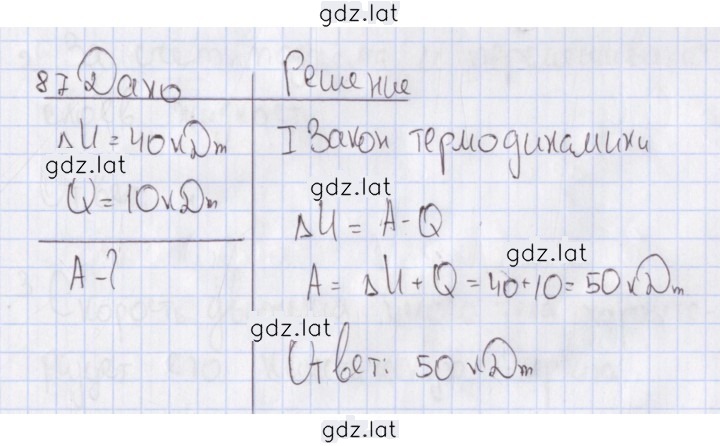 gdz.lat
87 Дано
ΔU = 40 кДж
gdz.lat
Q = 10 кДж
A - ?
Решение
I Закон термодинамики
gdz.lat
ΔU = A - Q
gdz.lat
A = ΔU + Q = 40 + 10 = 50 кДж
gdz.lat
Ответ: 50 кДж
gdz.lat